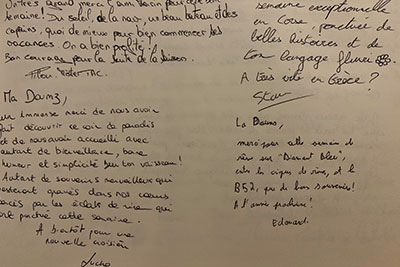 Un très grand merci à
semaine. Du soleil, de la mer, un beau bateau et des
copains, quoi de mieux pour bien commencer les
vacances. On a bien profité !
Bon courage pour la suite de la saison.
semaine exceptionnelle
en Corse, ponctuée de
belles histoires et de
ton langage fleuri
A très vite en Grèce ?
Ma Doumz,
un immense merci de nous avoir
fait découvrir ce coin de paradis
et de nous avoir accueilli avec
autant de bienveillance, bonne
humeur et simplicité sur ton vaisseau !
Autant de souvenirs merveilleux qui
resteront gravés dans nos coeurs
bercés par les éclats de rire qui
ont ponctué cette semaine.
A bientôt pour une
nouvelle croisière
La Doums,
merci pour cette semaine de
rêve sur "Diamant Bleu",
et le
B52, que de bons souvenirs !
A l'année prochaine !
Edouard.